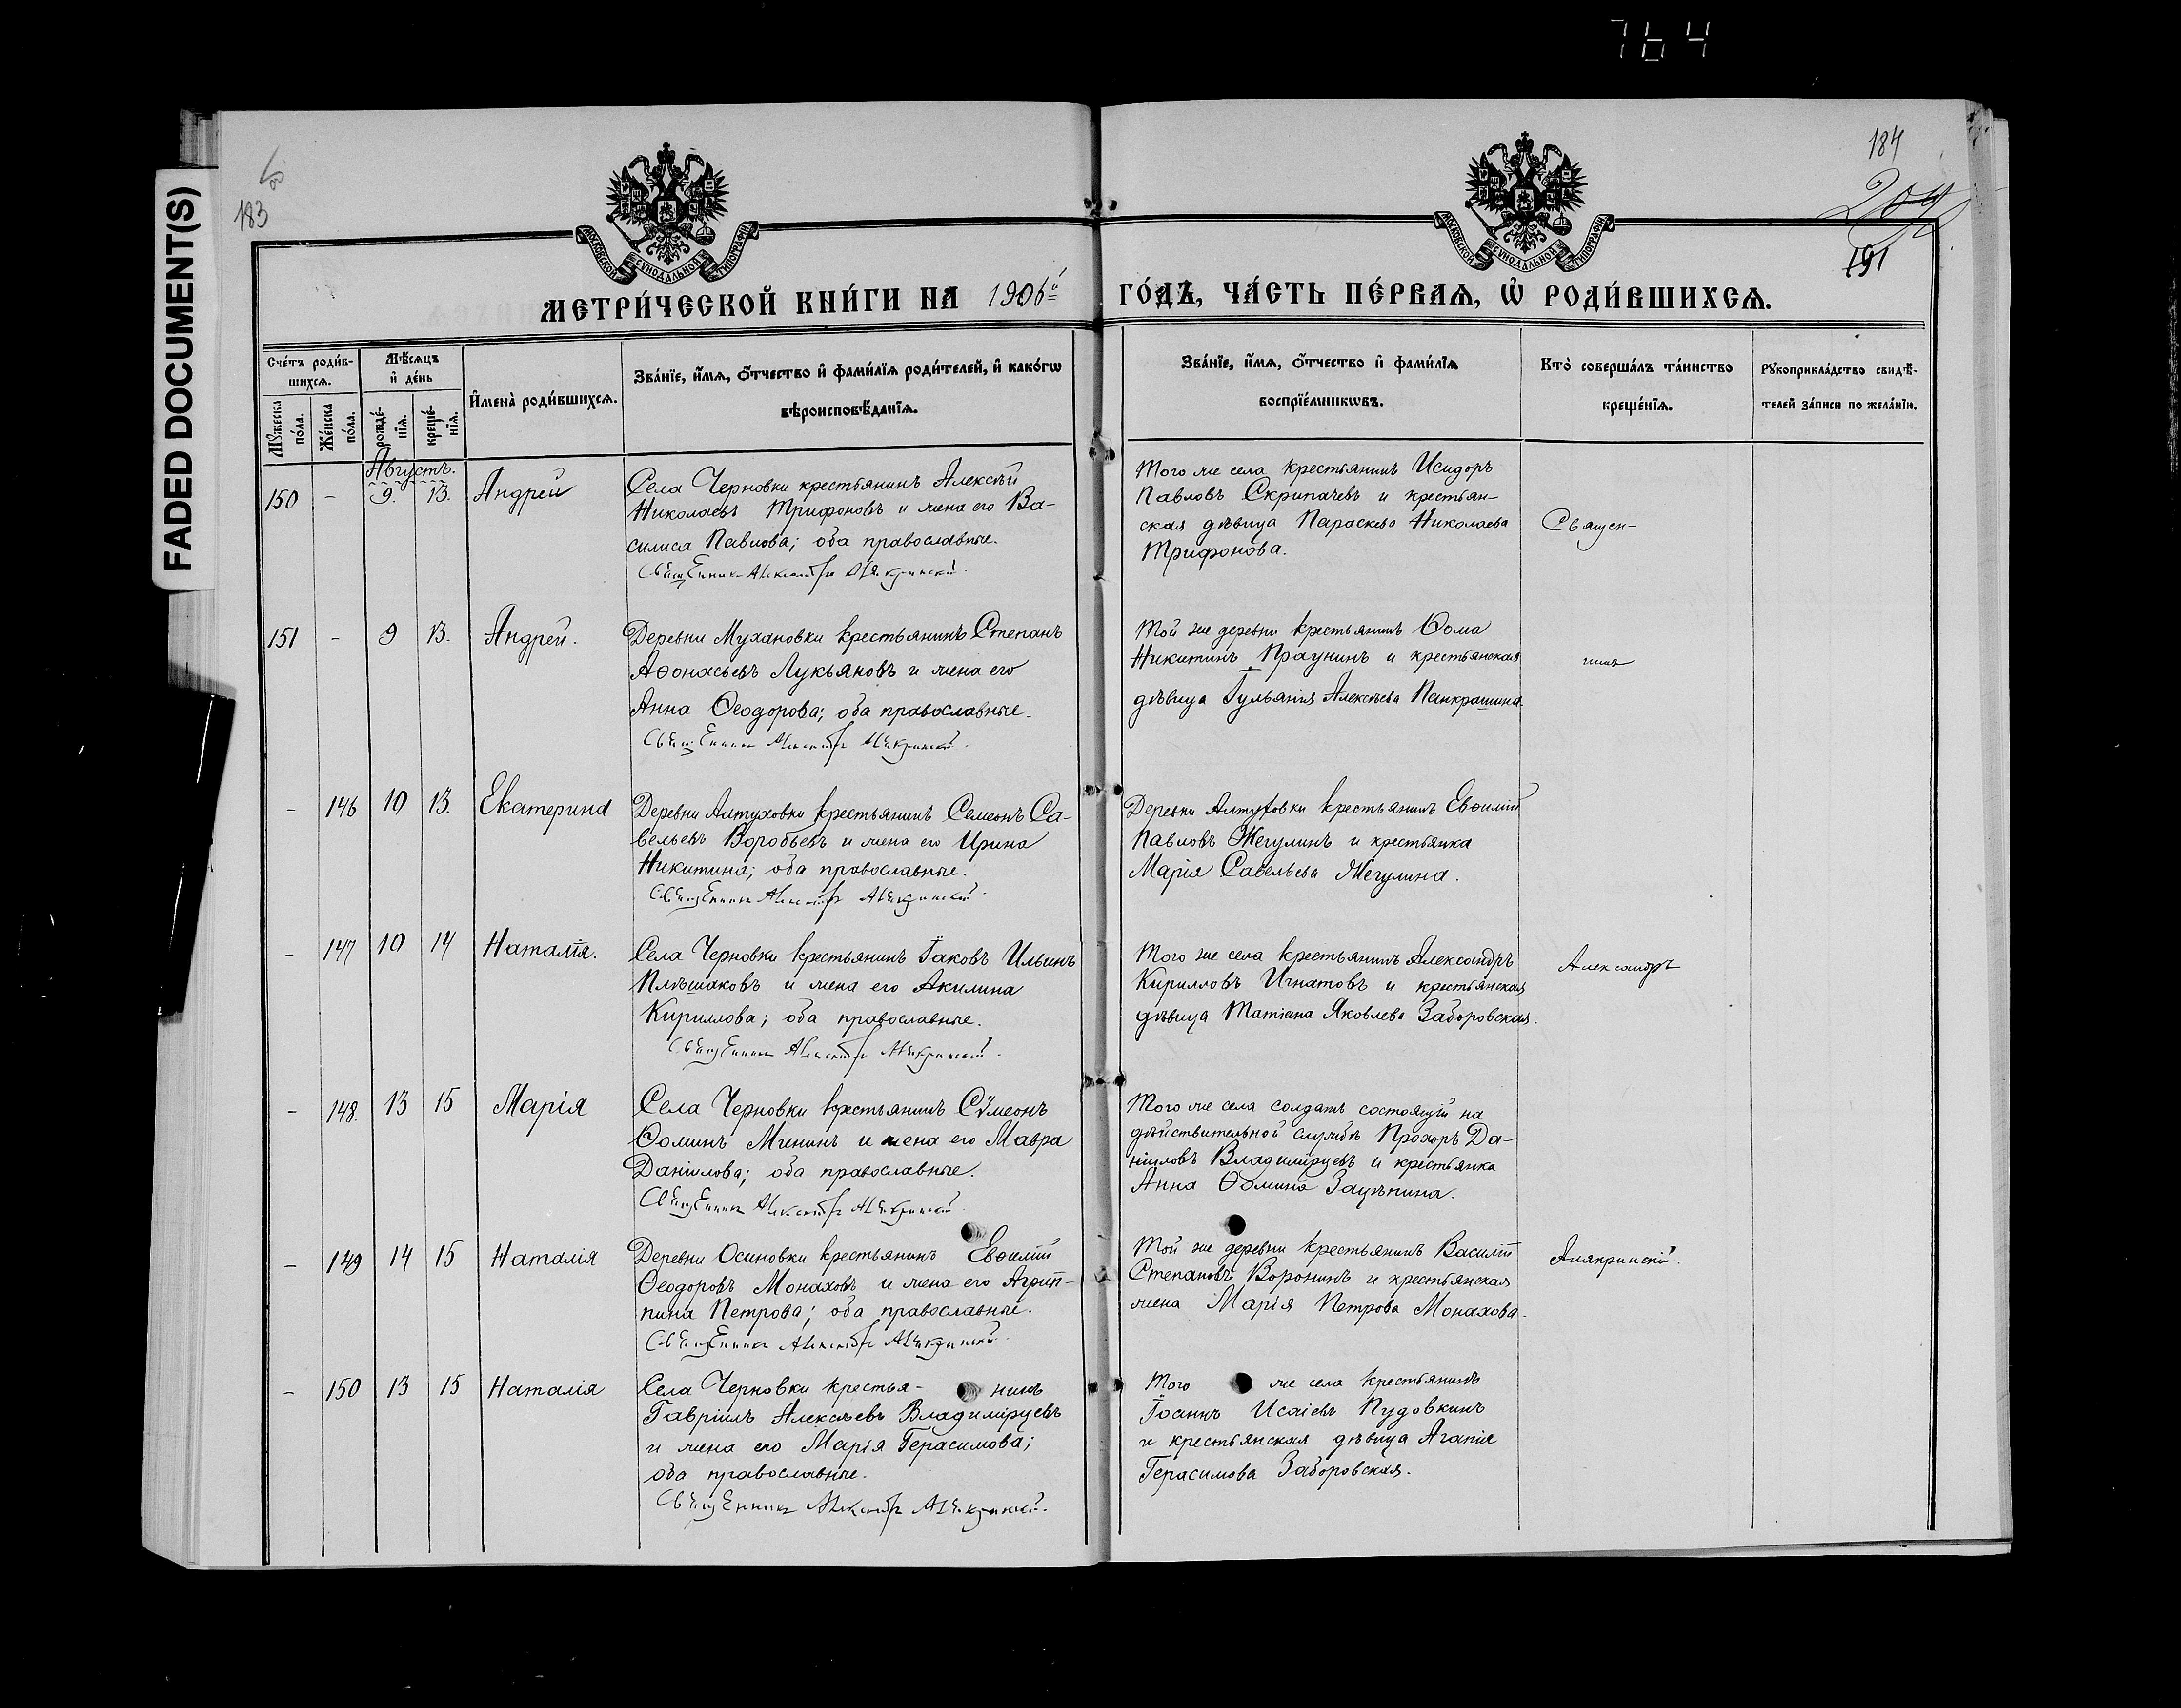 764
FADED DOCUMENT(S)
183
184
209
191
МОСКОВСКОЙ СУНОДАЛЬНОЙ ТИПОГРАФІИ
МОСКОВСКОЙ СУНОДАЛЬНОЙ ТИПОГРАФІИ
МЕТРИ́ЧЕСКОЙ КНИ́ГИ НА 1906й ГО́ДЪ, ЧА́СТЬ ПЕ́РВАѦ, Ѡ҆ РОДИ́ВШИХСѦ.
Сче́тъ роди́в-
шихсѧ.
Мꙋ́жеска
по́ла.
Же́нска
по́ла.
Мѣ́сѧцъ
и҆ де́нь
рожде́-
нїѧ.
креще́-
нїѧ.
И҆мена̀ роди́вшихсѧ.
Зва́нїе, и҆́мѧ, ѻ҆́тчество и҆ фами́лїѧ роди́телей, и҆ како́гѡ
вѣроисповѣ́данїѧ.
Зва́нїе, и҆́мѧ, ѻ҆́тчество и҆ фами́лїѧ
воспрїе́мникѡвъ.
Кто̀ соверша́лъ та́инство
креще́нїѧ.
Рꙋкоприкла́дство свидѣ́-
телей за́писи по жела́нїю.
Августъ.
150 - 9. 13. Андрей
Села Черновки крестьянинъ Алексѣй
Николаевъ Трифоновъ и жена его Ва-
силиса Павлова; оба православные.
Священникъ Александръ Алякринскій.
Того же села крестьянинъ Исидоръ
Павловъ Скрипачевъ и крестьян-
ская дѣвица Параскева Николаева
Трифонова.
Священ-
151 - 9 13. Андрей.
Деревни Мухановки крестьянинъ Степанъ
Аѳонасьевъ Лукьяновъ и жена его
Анна Ѳеодорова; оба православные.
Священникъ Александръ Алякринскій.
Той же деревни крестьянинъ Ѳома
Никитинъ Праунинъ и крестьянская
дѣвица Іульянія Алексѣева Панкрашина.
никъ
- 146 10 13. Екатерина
Деревни Алтуховки крестьянинъ Семеонъ Са-
вельевъ Воробьевъ и жена его Ирина
Никитина; оба православные.
Священникъ Александръ Алякринскій.
Деревни Алтуховки крестьянинъ Евѳимій
Павловъ Жегулинъ и крестьянка
Марія Савельева Жегулина.
- 147 10 14 Наталія.
Села Черновки крестьянинъ Іаковъ Ильинъ
Плѣшаковъ и жена его Акилина
Кириллова; оба православные.
Священникъ Александръ Алякринскій.
Того же села крестьянинъ Александръ
Кирилловъ Игнатовъ и крестьянская
дѣвица Татіана Яковлева Заборовская.
Александръ
- 148. 13 15 Марія
Села Черновки крестьянинъ Сѵмеонъ
Ѳоминъ Мининъ и жена его Мавра
Даніилова; оба православные.
Священникъ Александръ Алякринскій.
Того же села солдатъ состоящій на
дѣйствительной службѣ Прохоръ Да-
ніиловъ Владимірцевъ и крестьянка
Анна Ѳомина Зацѣпина.
- 149 14 15 Наталія
Деревни Осиновки крестьянинъ Евѳимій
Ѳеодоровъ Монаховъ и жена его Агрип-
пина Петрова; оба православные.
Священникъ Александръ Алякринскій.
Той же деревни крестьянинъ Василій
Степановъ Воронинъ и крестьянская
жена Марія Петрова Монахова.
Алякринскій.
- 150 13 15 Наталія
Села Черновки крестья- нинъ
Гавріилъ Алексѣевъ Владимірцевъ
и жена его Марія Герасимова;
оба православные.
Священникъ Александръ Алякринскій.
Того же села крестьянинъ
Іоаннъ Исаіевъ Пудовкинъ
и крестьянская дѣвица Агапія
Герасимова Заборовская.